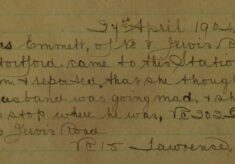 27th April 1904
as Emmett, of No 8 Jervis Ro
Hortford, came to the Statio
m. & reported, that she though
usband was going mad, & sh
to stop where he was, PC 202
to Jervis Road
PC 15 Lawrence,